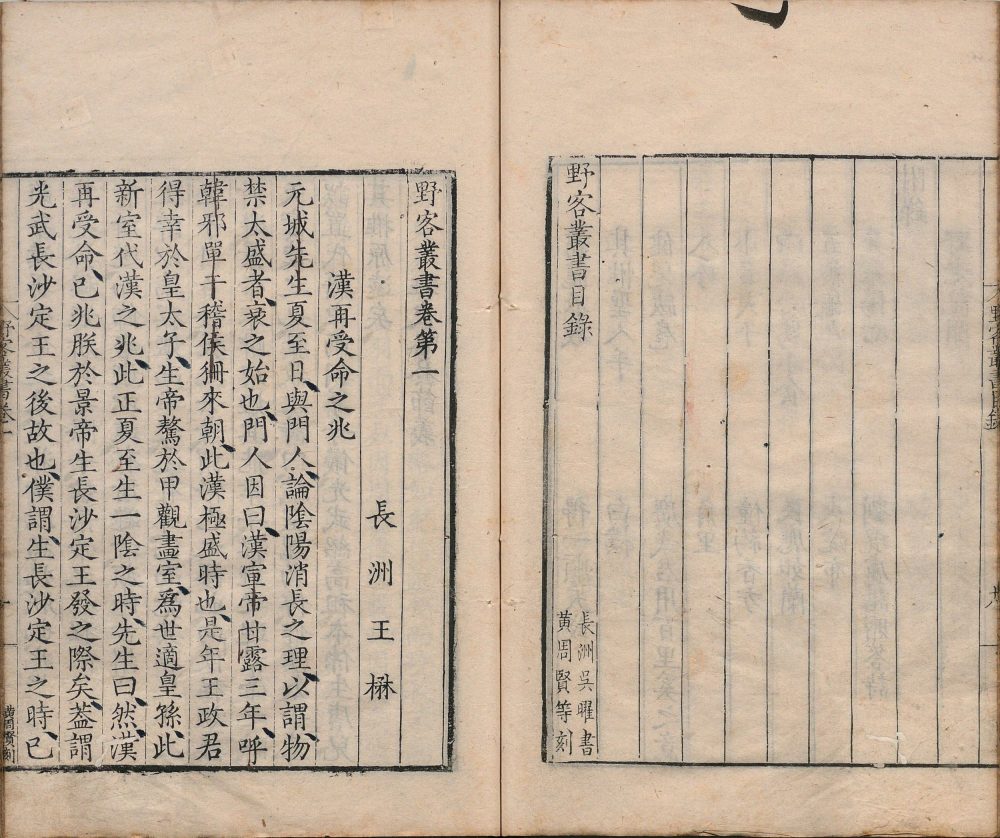 野客叢書目錄
長洲吳曜書
黃周賢等刻
野客叢書卷第一
長洲王楙
漢再受命之兆
元城先生夏至日與門人論陰陽消長之理以謂物
禁太盛者衰之始也門人因曰漢宣帝甘露三年呼
韓邪單于稽侯狦來朝此漢極盛時也是年王政君
得幸於皇太子生帝驁於甲觀畫室為世適皇孫此
新室代漢之兆此正夏至生一陰之時先生曰然漢
再受命已兆朕於景帝生長沙定王發之際矣蓋謂
光武長沙定王之後故也僕謂生長沙定王之時已
野客叢書卷一
黃周賢刻